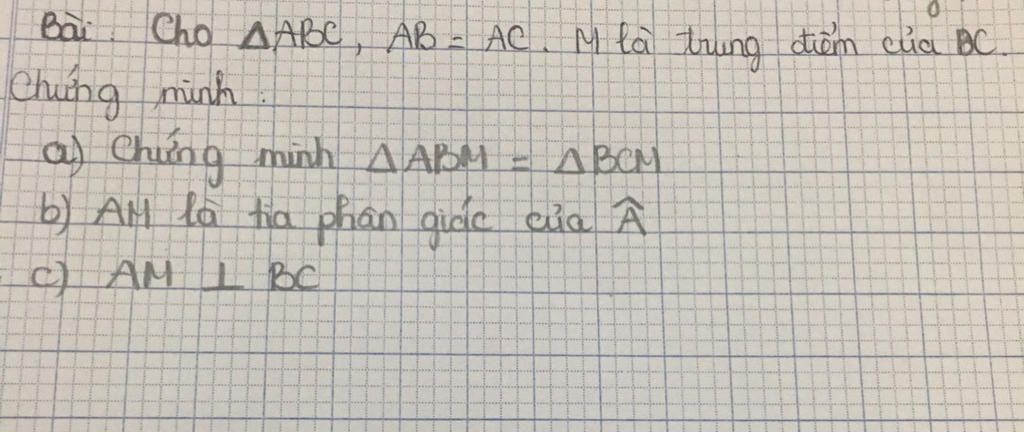 Bài. Cho ΔABC, AB = AC. M là trung điểm của BC.
Chứng minh:
a) Chứng minh ΔABM = ΔBCM
b) AM là tia phân giác của Â
c) AM ⊥ BC